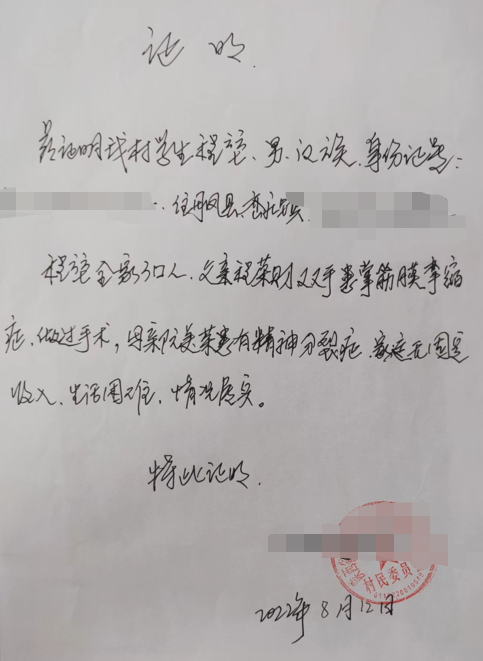 证明.
兹证明我村学生程、男、汉族、身份证号:
住丹凤县
程全家3口人、父亲程荣财双手患掌筋膜挛缩
症、做过手术,母亲阮美荣患有精神分裂症、家庭无固定
收入、生活困难、情况属实。
特此证明.
村民委员
2022年8月12日